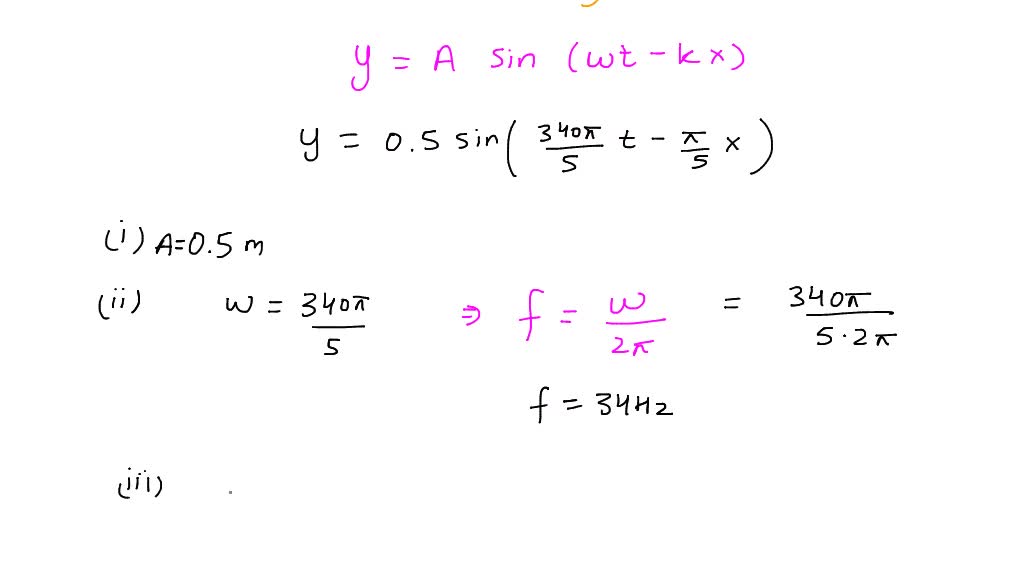 y = A sin (ωt - kx)
y = 0.5 sin( 340π/5 t - π/5 x )
(i) A=0.5 m
(ii) ω = 340π/5 ⇒ f = ω/2π = 340π/5·2π
f = 34Hz
(iii)